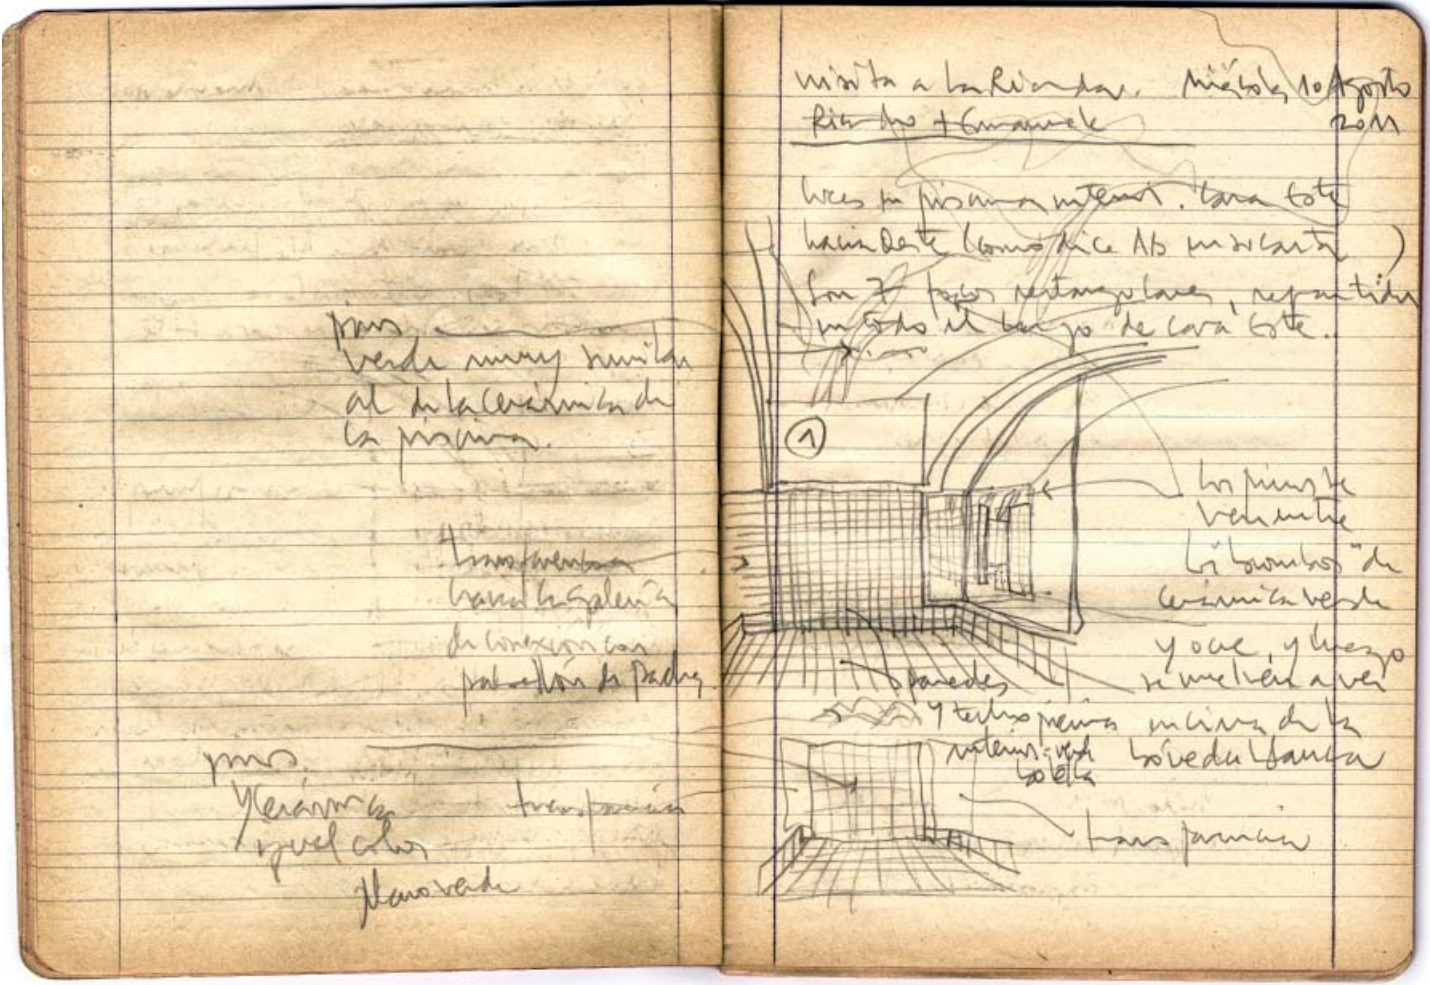 pinos
verde muy similar
al de la cerámica de
la piscina.
transparencia
hacia la galería
de conexión con
pabellón de Padres
pinos
y cerámica
igual color
plano verde
transparencia
visita a la Rianda. miércoles 10 Agosto
Ricardo + Emanuele 2011
luces en piscina interior. Cara Este
hacia Oeste (como dice AB en su carta)
Son 7 focos rectangulares, repartidos
en todo el largo de cara Este.
1
los pinos se
ven entre
los "biombos" de
cerámica verde
y ocre, y luego
se vuelven a ver
encima de la
bóveda blanca
paredes
y techo piscina
interior: verde
botella
transparencia